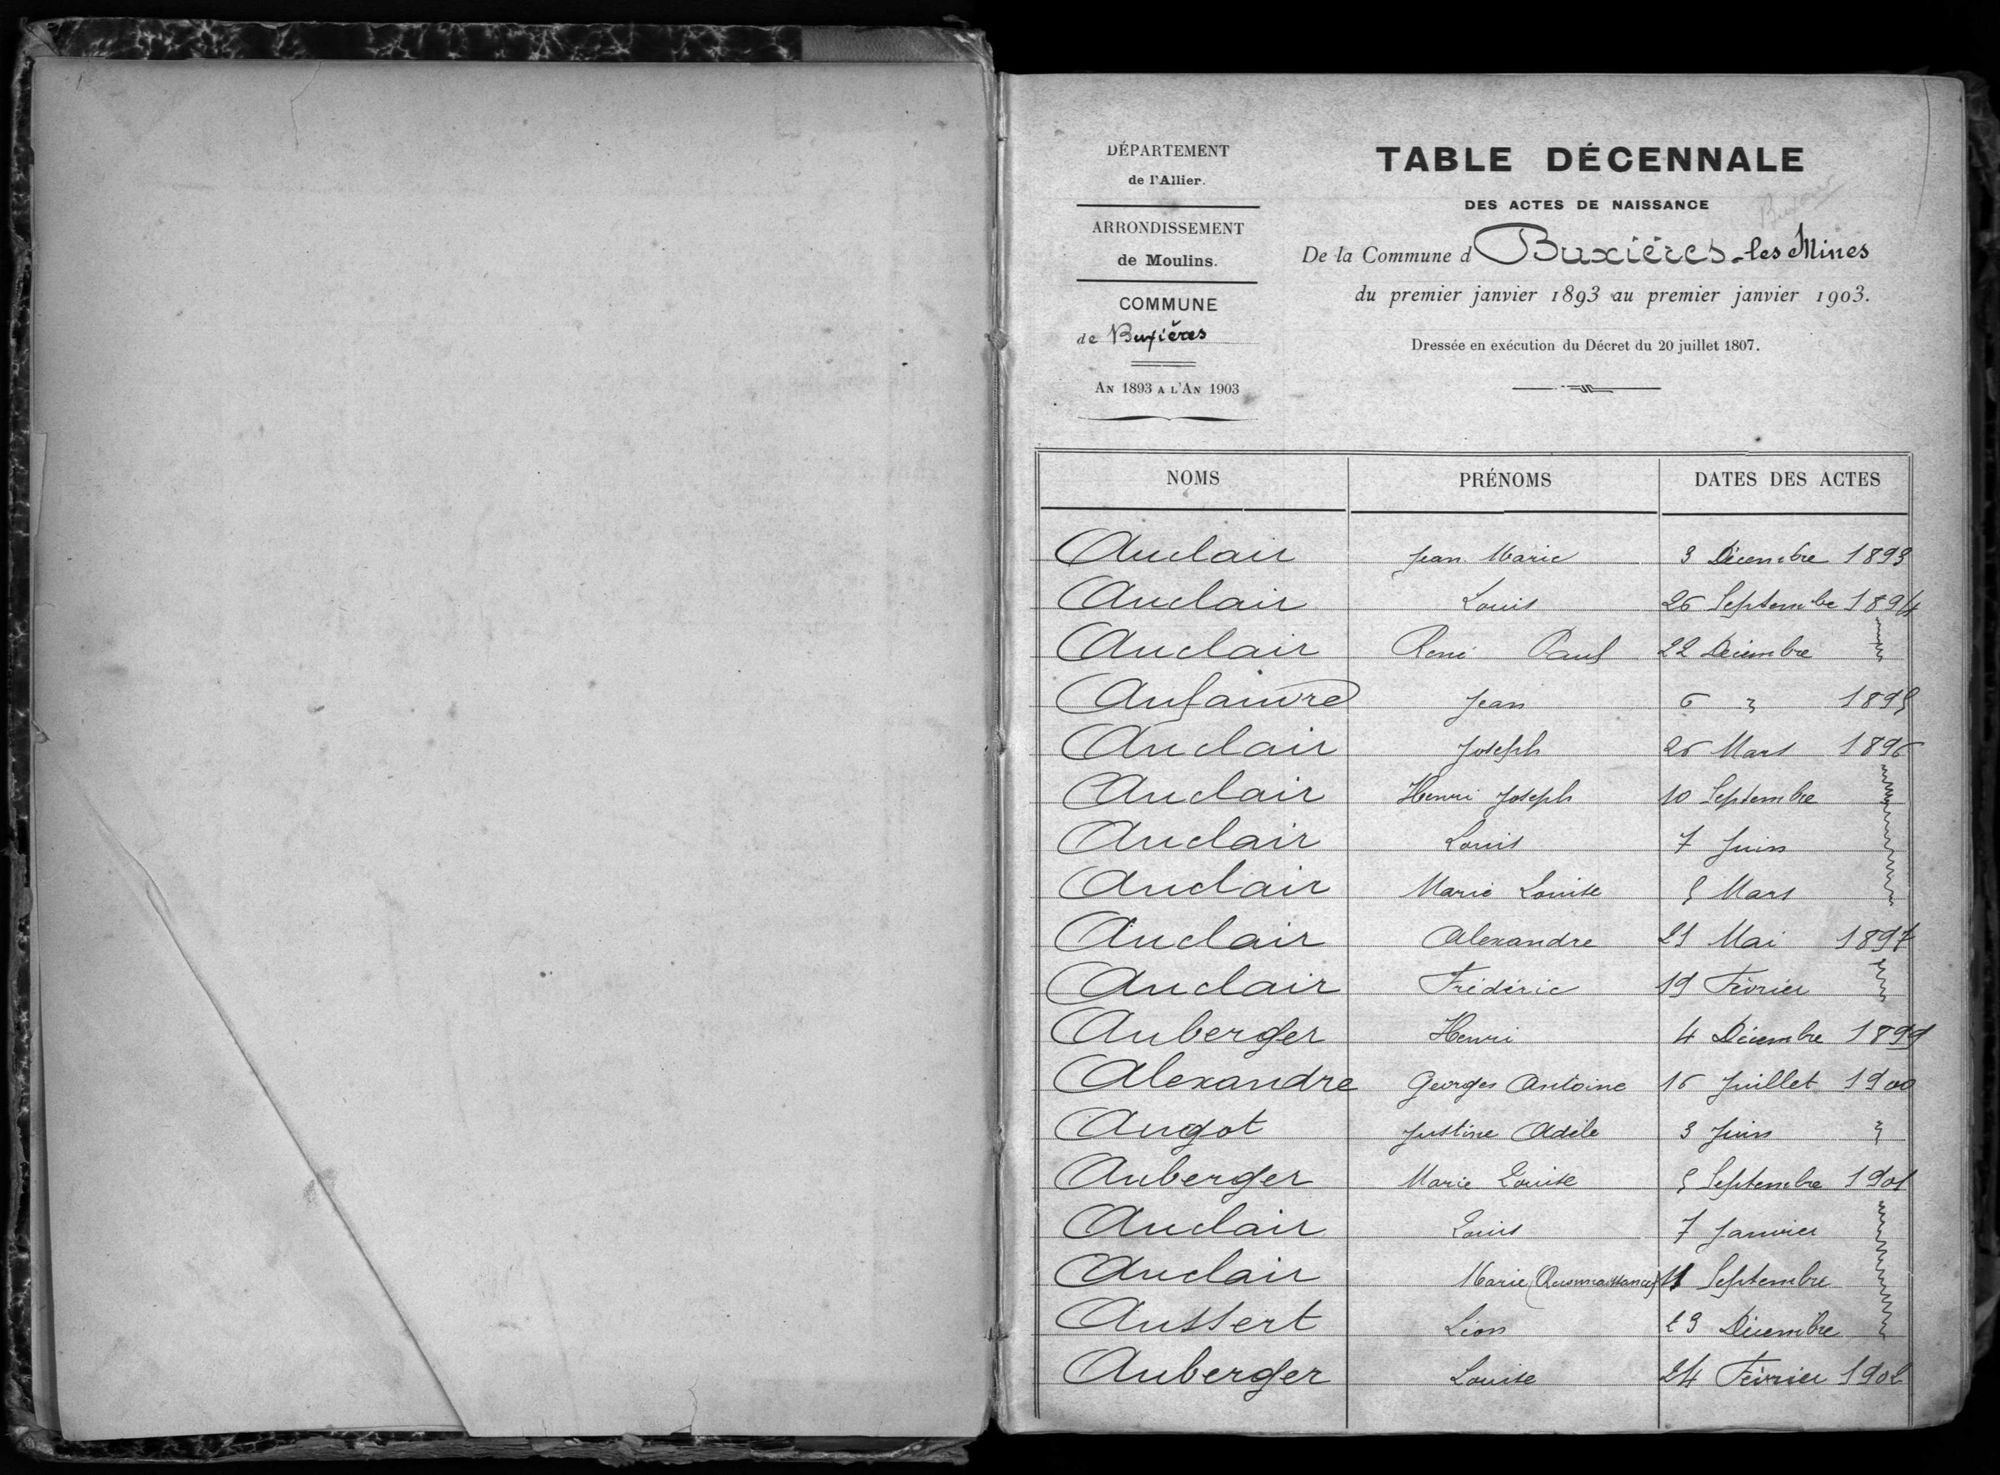 DÉPARTEMENT
de l'Allier.
ARRONDISSEMENT
de Moulins.
COMMUNE
de Buxières
AN 1893 A L'AN 1903
TABLE DÉCENNALE
DES ACTES DE NAISSANCE
De la Commune d Buxières-les Mines
du premier janvier 1893 au premier janvier 1903.
Dressée en exécution du Décret du 20 juillet 1807.
NOMS PRÉNOMS DATES DES ACTES
Auclair Jean Marie 3 Décembre 1893
Auclair Louis 26 Septembre 1894
Auclair René Paul 22 Décembre
Aufauvre Jean 6 " 1895
Auclair Joseph 26 Mars 1896
Auclair Henri Joseph 10 Septembre
Auclair Louis 7 Juin
Auclair Marie Louise 5 Mars
Auclair Alexandre 21 Mai 1897
Auclair Frédéric 19 Février
Auberger Henri 4 Décembre 1899
Alexandre Georges Antoine 16 Juillet 1900
Augot Justine Adèle 3 Juin "
Auberger Marie Louise 5 Septembre 1901
Auclair Louis 7 Janvier
Auclair Marie (Reconnaissance) 11 Septembre
Aussert Léon 23 Décembre
Auberger Louise 24 Février 1902